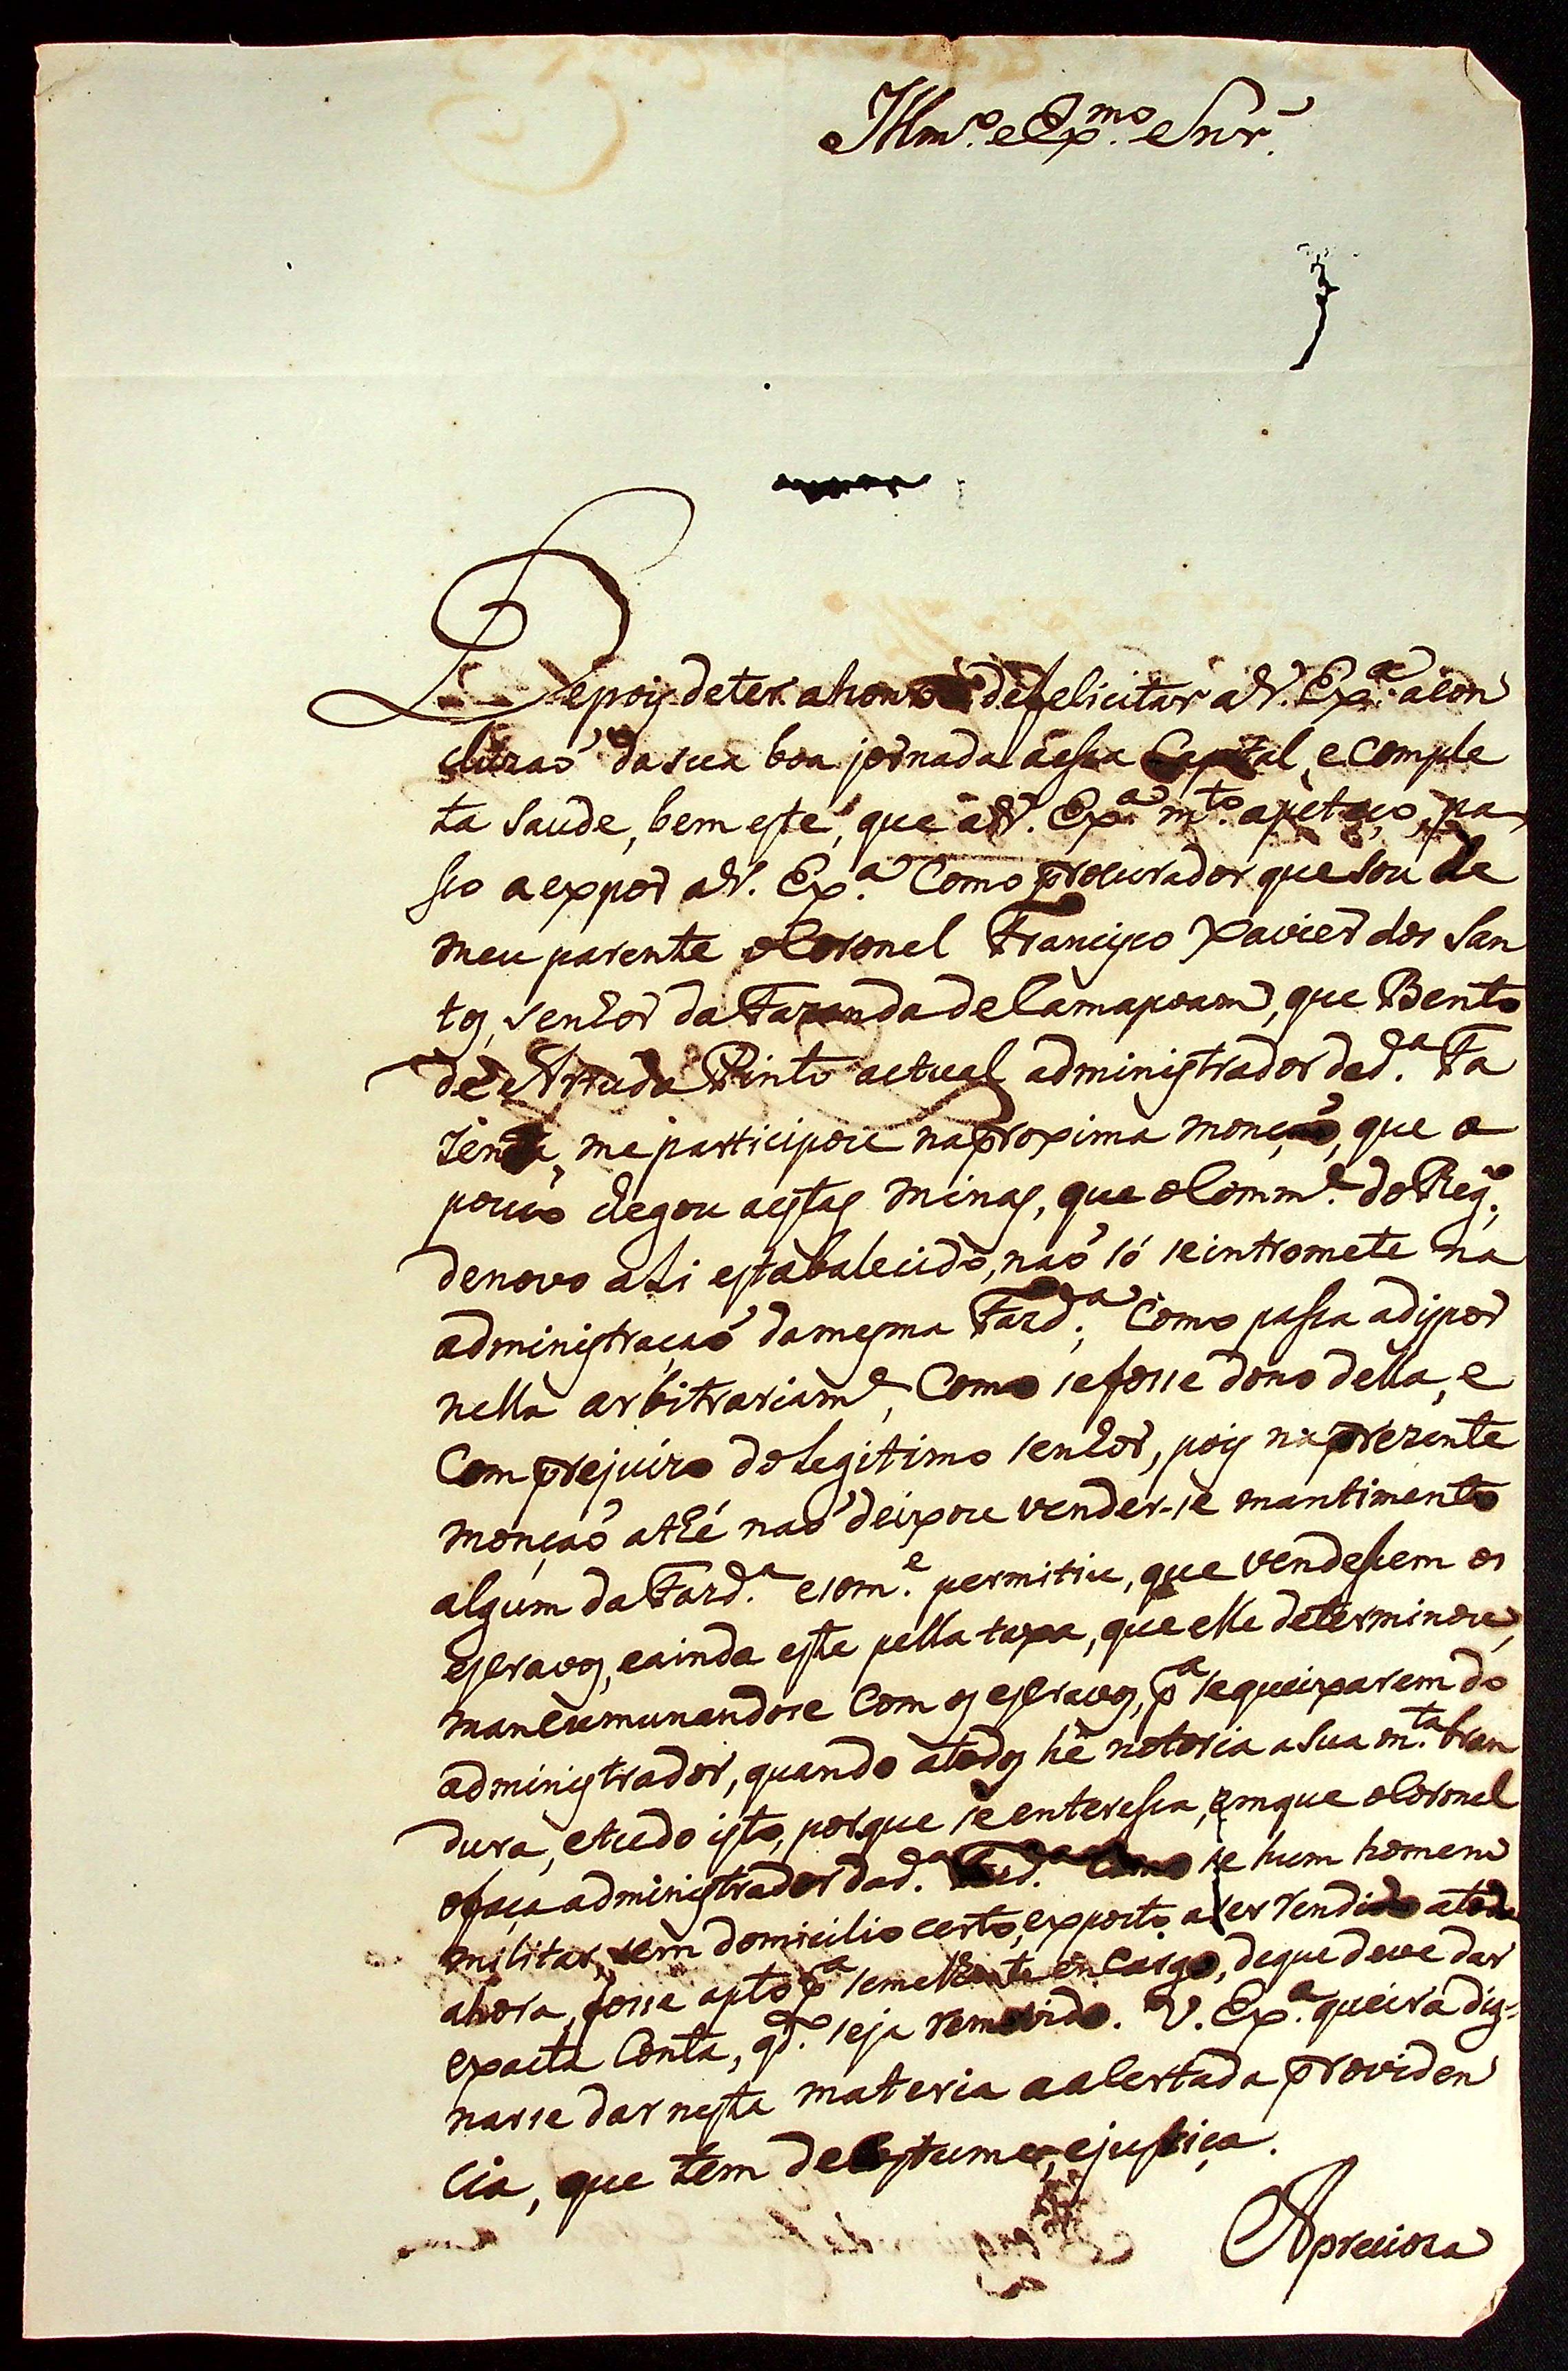 Illm.º e Ex.mo Snr.
Depois deter ahonra defelicitar aV. Ex.ª acon
cluzaõ dasua boa jornada aessa Capital, e comple
ta saude, bem este, que aV. Ex.ª m.to apeteço, pa
sso aexpor aV. Ex.ª Como procurador que sou de
meu parente oCoronel Francisco Xavier dos San
tos, senhor da Fazenda deCamapoam, que Bento
de Arruda Pinto actual administrador dad.ª Fa
zenda, me participou naproxima monçaõ, que a
pouco chegou aestas minas, que oComm.e do Reg.º,
denovo ahi estabalecido, naõ só seintromete na
administraçaõ damesma Fazd.ª, Como passa adispor
nella arbitrariam.e, Como sefosse dono della, e
Com prejuizo doLegitimo senhor, pois na prezente
monçaõ athé naõ deixou vender-se mantimento
algum da Fazd.ª esom.e permitiu, que vendessem os
escravos, eainda este pella taxa, que elle determinou,
mancumunandose Com os escravos, p.ª sequeixarem do
administrador, quando atodos hé notoria asua m.ta bran
dura, etudo isto, porque se enteressa, emque oCoronel
ofaça administrador dad.ª Fazd.ª Como se hum homem
militar, sem domicilio certo, exposto aser rendido atoda
ahora, fosse apto p.ª semelhante enCargo, deque deve dar
exacta Conta, qd.º seja removido. V. Ex.ª queira dig=
narse dar nesta materia aaCertada providen
cia, que tem deCostume, ejustiça.
Apreciosa